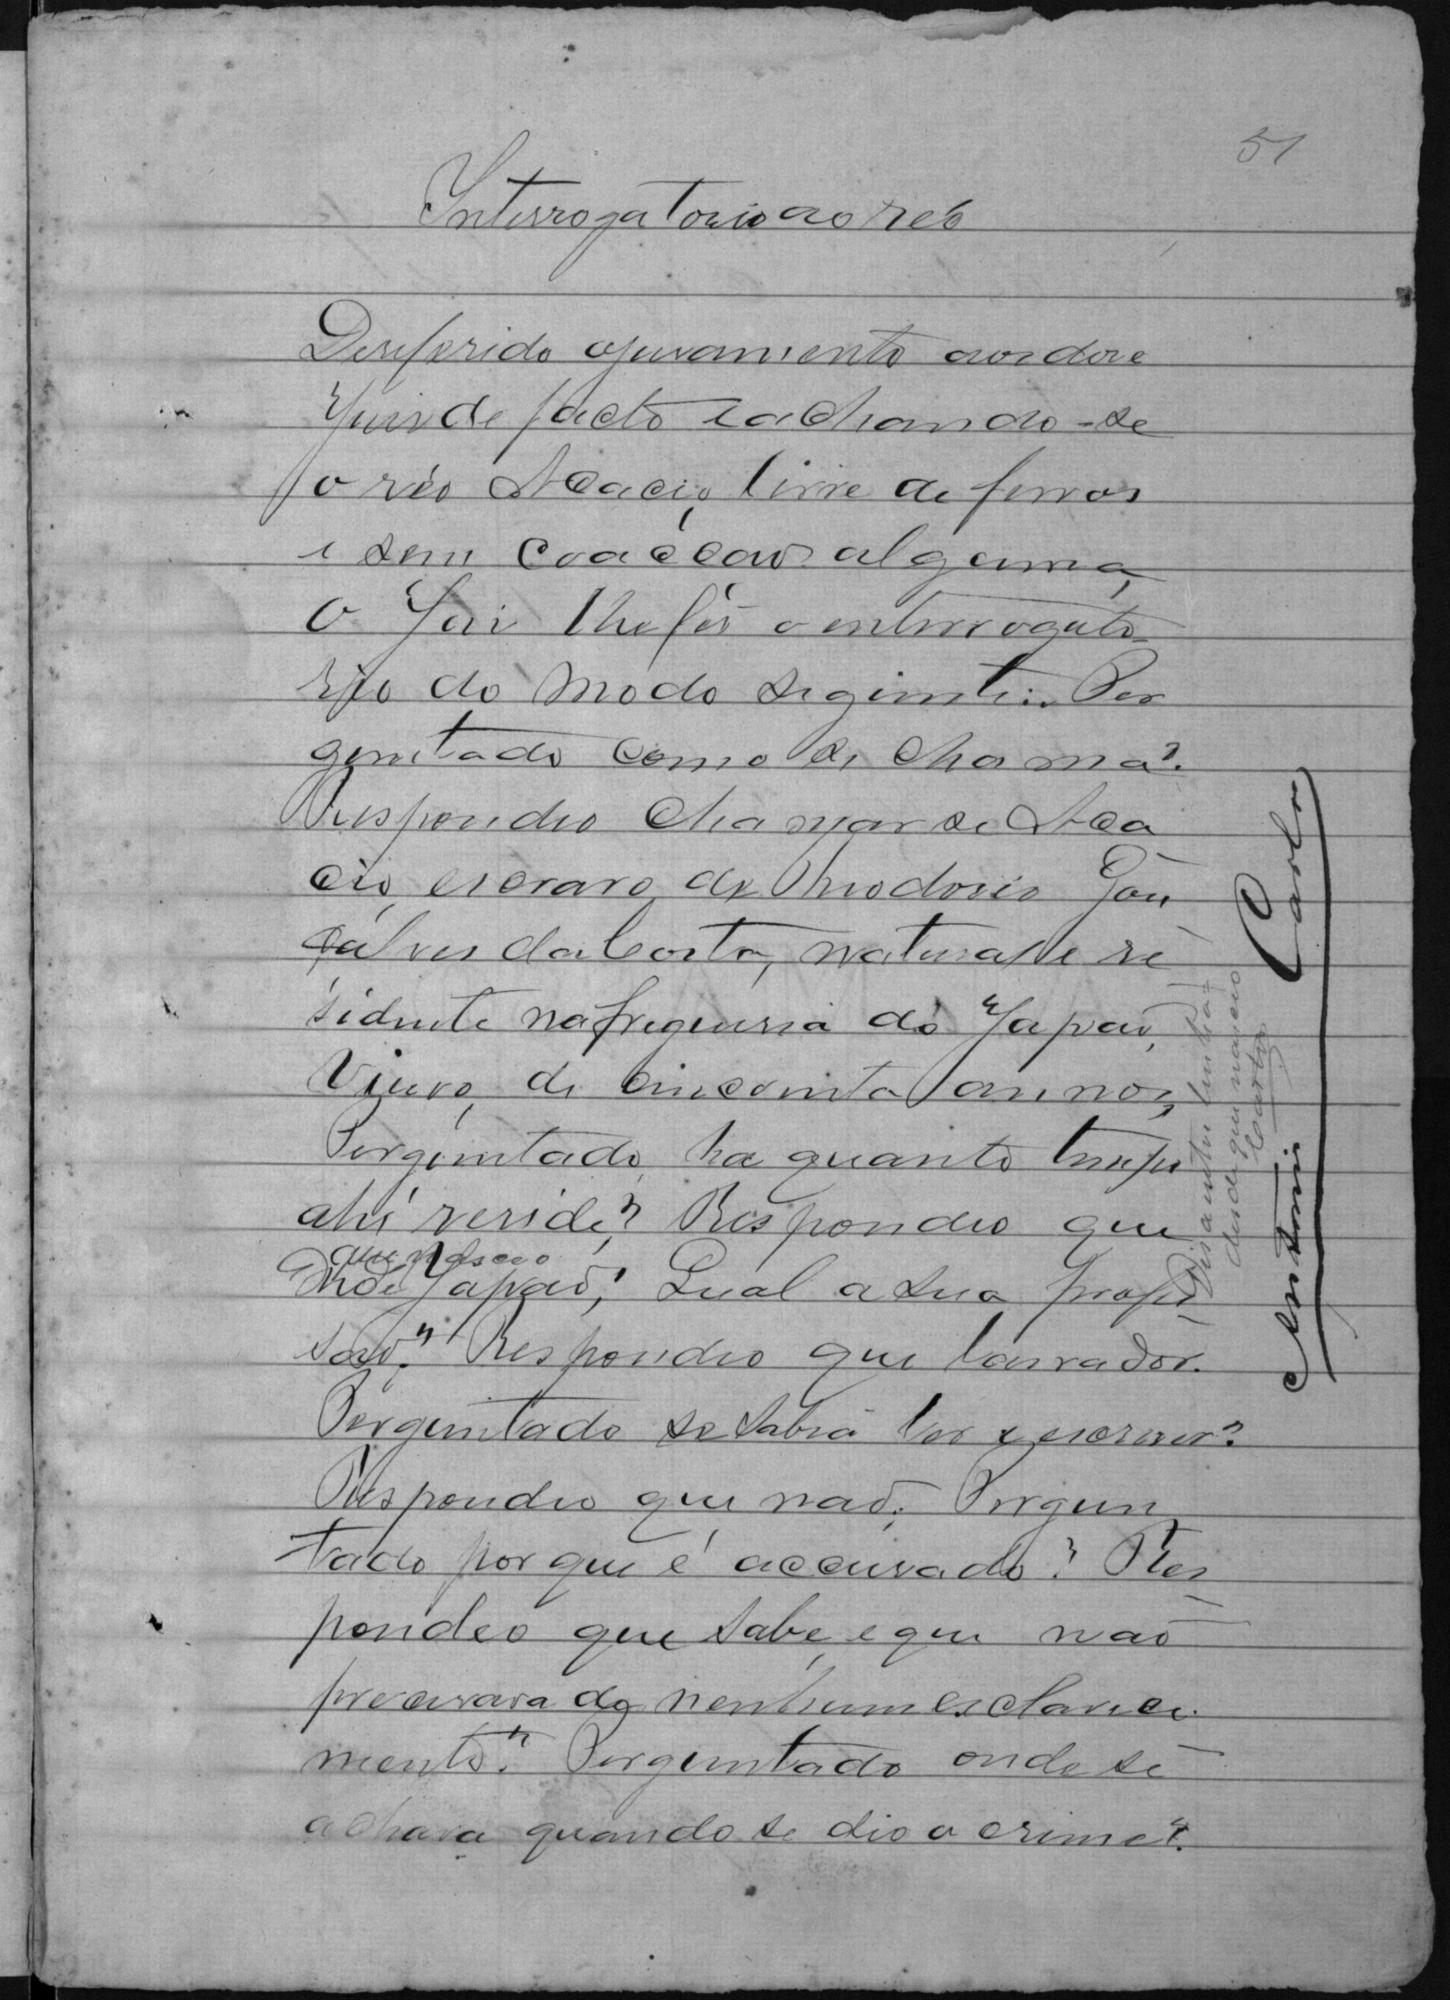 51
Interrogatorio ao réo
Defferido o juramento aos doze
Juis de facto e achando-se
o réo Acacio, livre de ferros
e sem coacção alguma,
o Jui lhe fes o enterrogato
rio do modo seguinte: Per
guntado como se chama?
Respondeo chamar se Aca
cio, escravo de Theodosio Gon
çalves da Costa, natural e re
sidente na freguesia do Japaõ,
Viuvo, de cincoenta annos,
Perguntado ha quanto tempo
ahi reside? Respondeo que
que nasceo
Japaõ; Qual a sua profis
saõ? Respondeo que lavrador.
Perguntado se sabia ler e escrever?
Respondeo que naõ; Pergun
tado por que é accusado? Res
pondeo que sabe, e que naõ
precisava de nenhum esclareci
mento? Perguntado onde se
achava quando se dio o crime?
desde que nasceo
Castro
Antonio Carlos